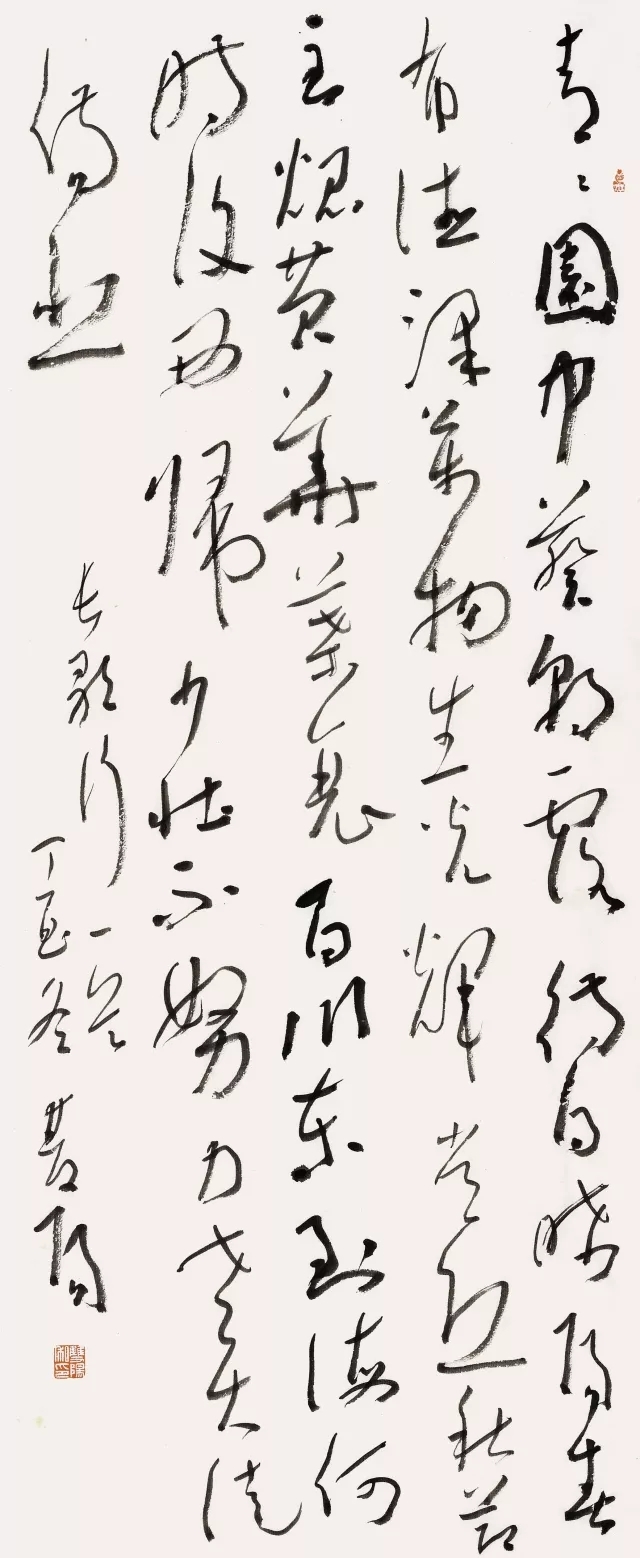 青〻園中葵朝露待日晞陽春
布德澤萬物生光輝常恐秋節
至焜黃華葉衰百川東到海何
時復西歸少壯不努力老大徒
傷悲
長歌行一首
丁酉冬